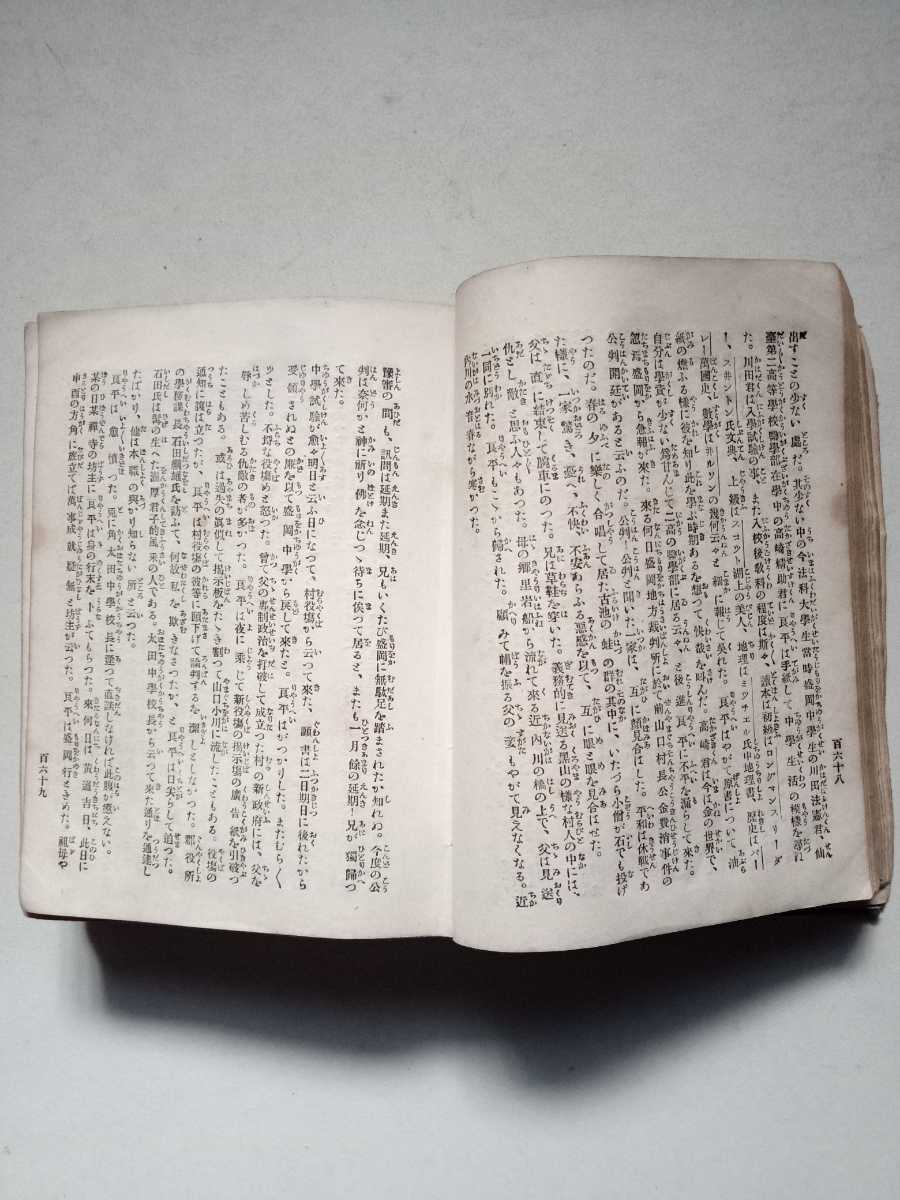 出すことの少ない處だ。其少ない中の今法科大學生當時盛岡中學生の川田法憲君、仙
臺第二高等學校醫學部在學中の高崎婦助君に良平は手紙して、中學生活の模樣を尋ね
た。川田君は入學試驗の事、また入校後敎科の程度は斯々、讀本は初級はロングマンスリーダ
ー、ス井ントン氏文典、上級はスコット湖上の美人、地理はミツチエル氏中地理書、歷史はパー
レー萬國史、數學は井ルソンの幾何云々と、細に報じて吳れた。良平はやがて原書について、油
紙の燃ふる樣に彼を知り此を學ぶ時期あるを想つて、快哉を叫んだ。高崎君は今は金の世界で、
自分は學資が少ない爲甘んじて二高の醫學部に居る云々、と後進良平に不平を漏らして來た。
忽焉、盛岡から急報が來た。來る何日盛岡地方裁判所に於て前山口村長公金費消事件の
公判開廷があると云ふのだ。公判！公判と聞いた一家は、互に顏見合はした。平和は休戰であ
つたのだ。春の夕に樂しく合唱して居た古池の蛙の群の其中に、いたづら小僧が石でも投げ
た樣に、一家驚き、憂へ、不快、不安あらゆる惡感を以て、互に眼と眼を見合はせた。
父は直に結束して腕車にのつた。兄は草鞋を穿いた。義務的に見送る黑山の樣な村人の中には、
仇とし敵と思ふ人々もあつた。母の鄉里岩船から流れて來る近内川の橋の上で、父は見送
一同に別れた。良平もこゝから歸された。顧みて帽を振る父の姿もやがて見えなくなる。近
内川の水音、春ながら寒かつた。
百六十八
豫審の間も、訊問は延期また延期、兄もいくたび盛岡に無駄足を踏まされたか知れぬ。今度の公
判は奈何かと神に祈り佛を念じつゝ待ちに俟つて居ると、またも一月餘の延期、兄が獨歸つ
て來た。
中學試驗が愈々明日と云ふ日になつて、村役塲から云つて來た、願書は二日期日に後れたから
要領されぬとの廉を以て盛岡中學から戾して來たと。良平はがつかりした。またむらく
ッとした。不埒な役塲めと怒つた。曾て父の專制政治を打破して成立つた村の新政府には、父を
辱しめ苦しむる仇敵の者が多かつた。良平は夜に乘じて新役塲の揭示塲の廣告紙を引破つ
たこともある。或は過失の眞似して揭示板をたゝき割つて山口小川に流したこともある。
通知に腹は立つたが、良平は村役塲の彼等に頤下げて論判するを潔しとしなかつた。郡役所
の學務課長石田綱雄氏を訪ふて、何故私を欺きなさつたか、と良平は口尖らして迫つた。
石田氏は都の生へた溫厚君子的風采の人である。太田中學校長から云つて來た通りを通達し
たばかり、他は本職の與かり知らない所と云つた。
良平は愈憤つた。更に角太田中學校長に逢つて直談しなければ此腹が癒えない。
某の日某禪寺の坊主に良平は身の行末を卜ふてもらつた。來何日は黃道吉日、此日に
申酉の方角に旅立てば萬事成就疑無と坊主が云つた。良平は盛岡行ときめた。祖母や
百六十九